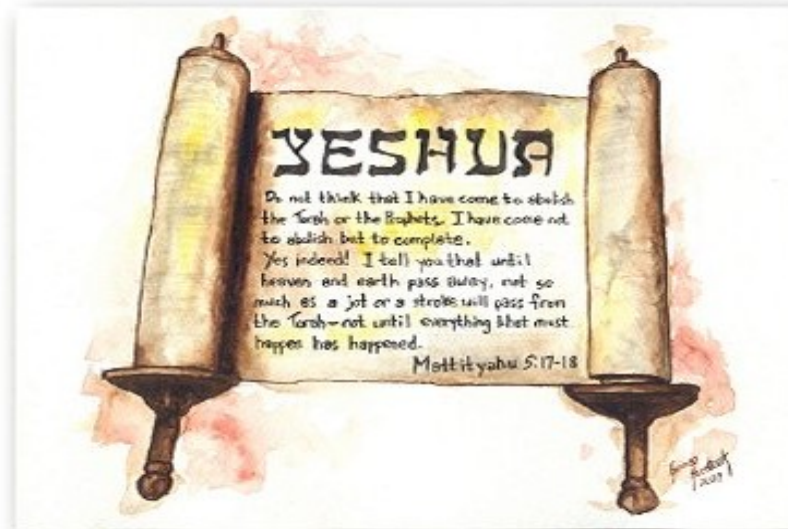 YESHUA
Do not think that I have come to abolish
the Torah or the Prophets. I have come not
to abolish but to complete.
Yes indeed! I tell you that until
heaven and earth pass away, not so
much as a jot or a stroke will pass from
the Torah-not until everything that must
happen has happened.
Mattityahu 5:17-18
2009